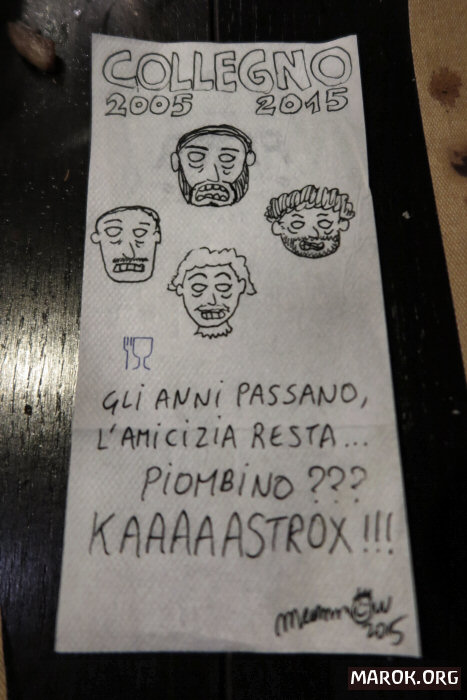 COLLEGNO
2005 2015
GLI ANNI PASSANO,
L'AMICIZIA RESTA...
PIOMBINO ???
KAAAAASTROX !!!
2015
MAROK.ORG